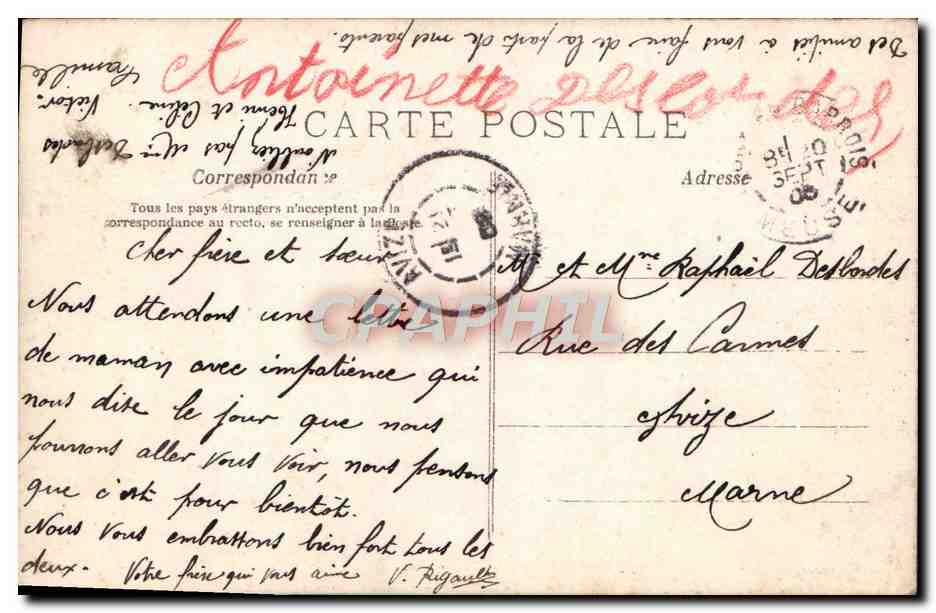 Des amitiés à vous faire de la part de mes parents.
Antoinette Desbordes
N'oubliez pas Mme Desbordes
Henri et Céline. Victor.
Famille
CARTE POSTALE
Correspondance
Adresse
Tous les pays étrangers n'acceptent pas la
correspondance au recto, se renseigner à la Poste.
SEPT
MEUSE
AVIZE
MARNE
Cher frère et sœur
Nous attendons une lettre
de maman avec impatience qui
nous dise le jour que nous
pourrons aller vous voir, nous pensons
que c'est pour bientôt.
Nous vous embrassons bien fort tous les
deux. Votre frère qui vous aime V. Rigault
Mr et Mme Raphaël Desbordes
Rue des Carmes
Avize
Marne
CPAPHIL